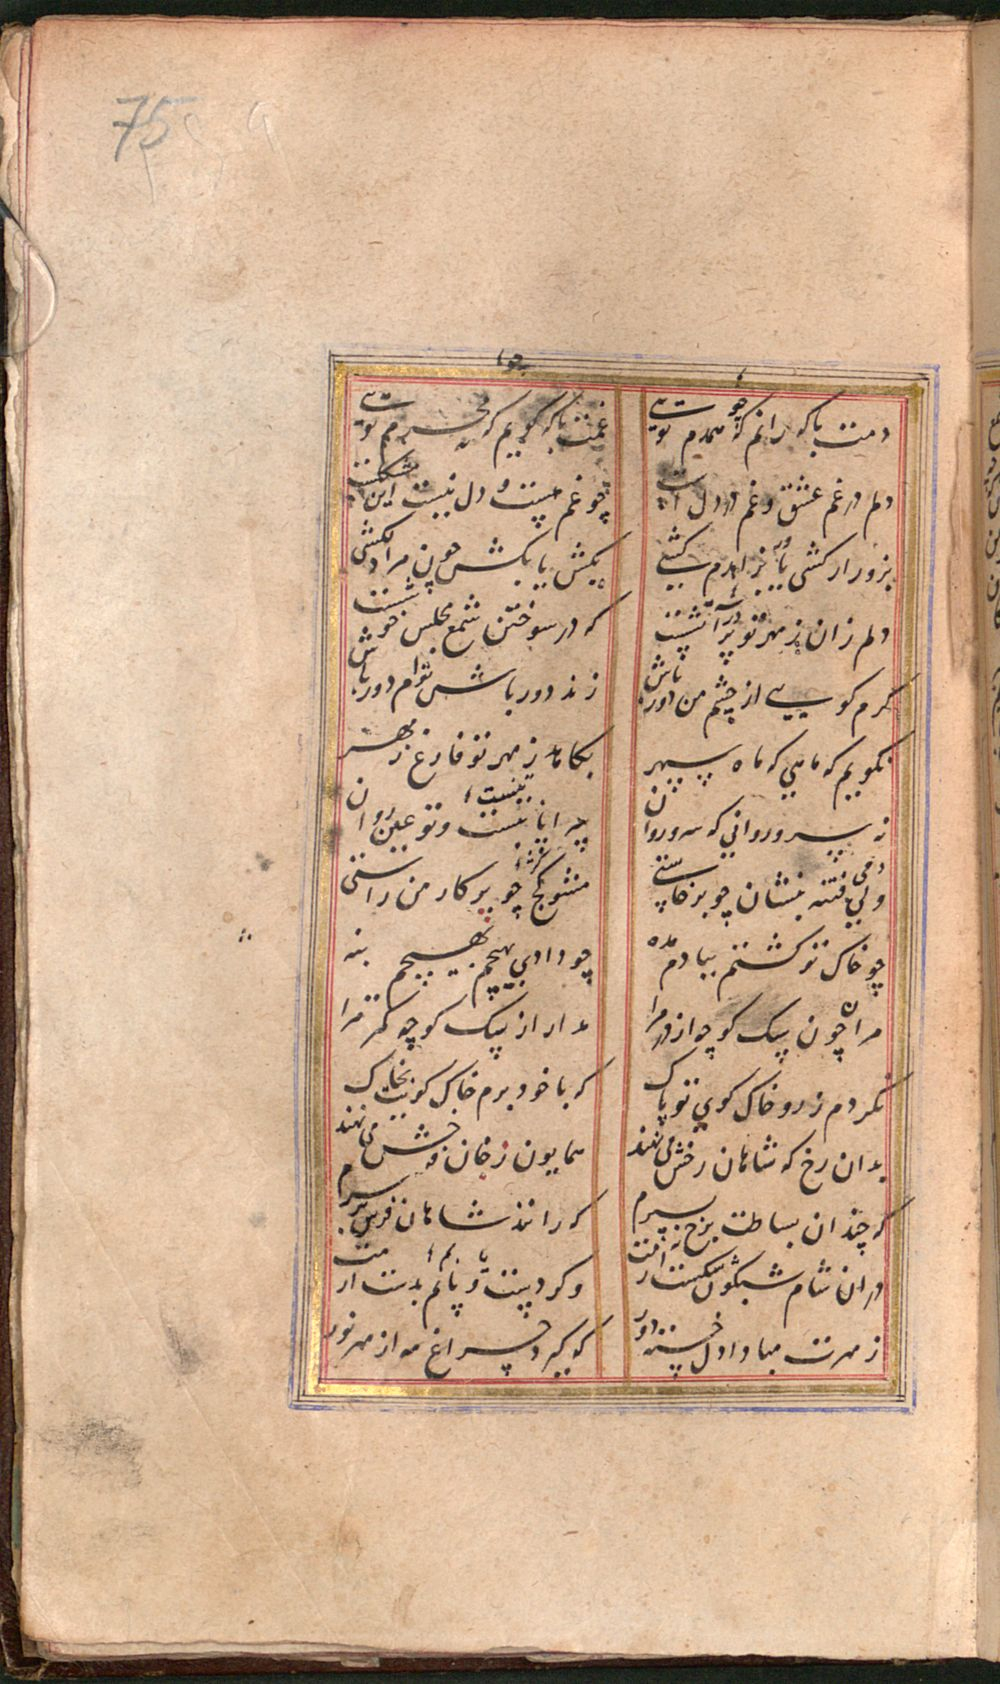 75
دمت با که رانم که چو همدم تویی غمت با که گویم که محرم تویی
دلم در غم عشق و غم در دل است چو غم هست و دل نیست این مشکلست
بزور ار کشی یا بزاریم کشی بکش یا بکش چون مرا دلکشی
دلم زان ز مهر تو پر آتشست که در سوختن شمع مجلس خوشست
گرم گویی از چشم من دور باش زند دور باش توام دور باش
نگویم که ماهی که ماه سپهر بکاهد ز مهر تو فارغ ز مهر
نه سرو روانی که سرو روان چه
ولی فتنه بنشان چو برخاستی مشو کج چو پرکار من راستی
چو خاک تو گشتم ببادم مده چو دادی بهیچم بهیچم بنه
مران چون پیک کوچه از در مرا مدار از پیک کوچه کمتر مرا
نکردم ز رو خاک کوی تو پاک که با خود برم خاک کویت بخاک
بدان رخ که شاهان رخش می نهند همایون رخان می نهند
که چندان بساطت برخ بسپرم که رانند شاهان فرس بر سرم
دران شام شبگون شکست و کر
ز مهرت مبادا دل خسته دور که گیرد چراغ مه از مهر نور